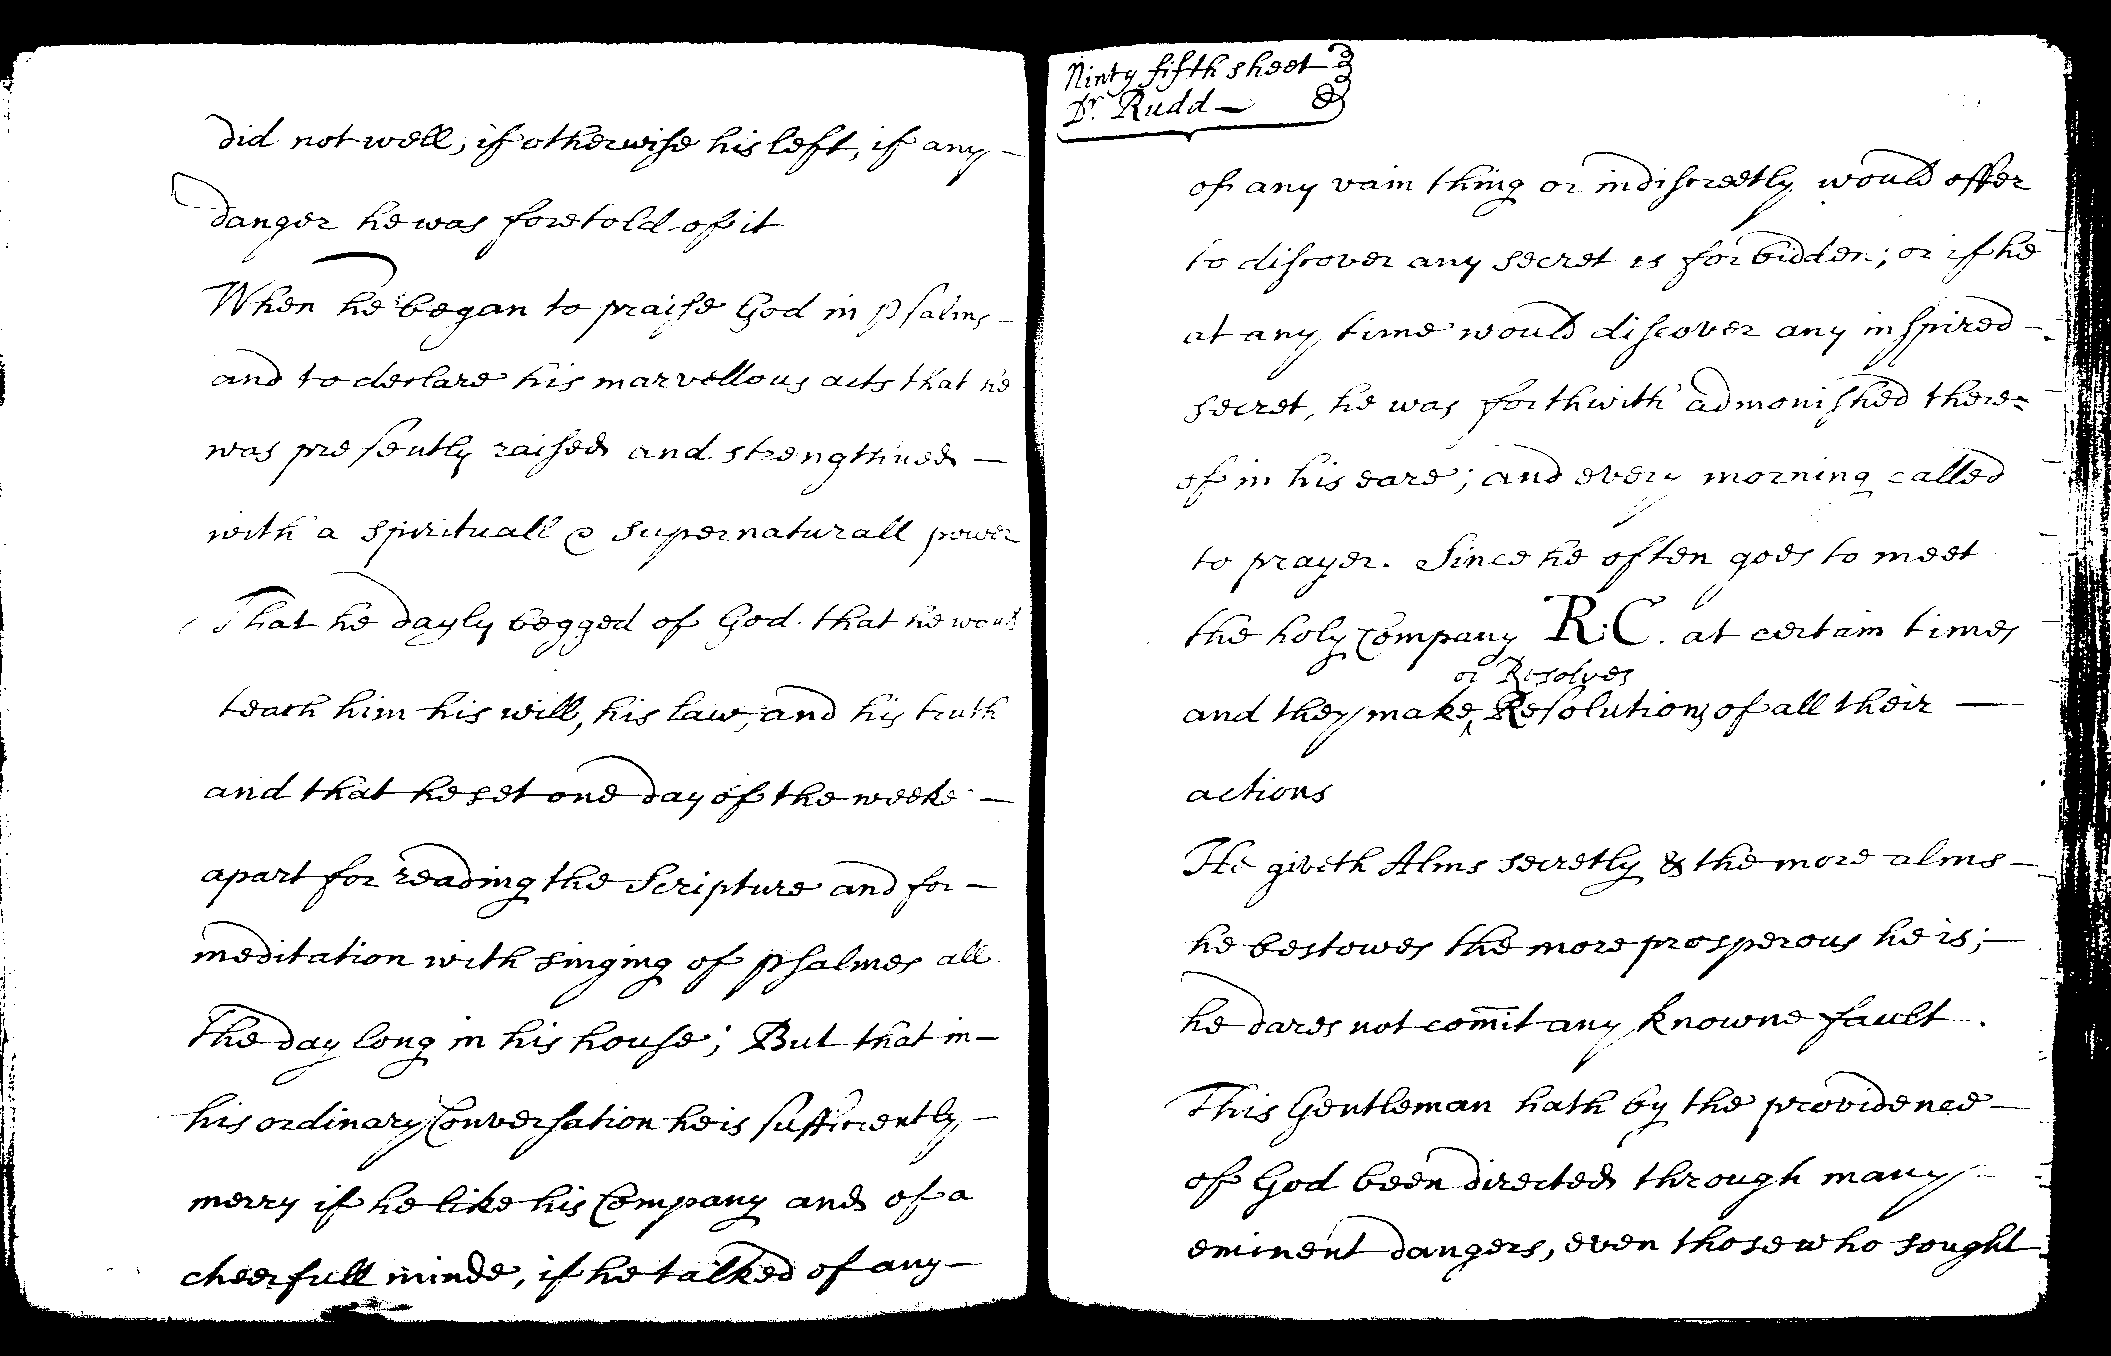 did not well, if otherwise his left, if any —
danger he was foretold of it
When he began to praise God in Psalms —
and to declare his marvellous acts that he
was presently raised and strengthned —
with a spirituall & supernaturall power
That he dayly begged of God that he would
teach him his will, his law, and his truth
and that he set one day of the weeke —
apart for reading the Scripture and for —
meditation with singing of Psalmes all
The day long in his house; But that in —
his ordinary Conversation he is sufficiently —
merry if he like his Company and of a
cheerfull minde, if he talked of any —
Ninty fifth sheet
Dr. Rudd —
of any vain thing or indiscreetly would offer
to discover any secret is forbidden; or if he
at any time would discover any inspired —
secret, he was forthwith admonished there=
of in his eare; and every morning called
to prayer. Since he often goes to meet
the holy Company R.C. at certain times
or Resolves
and they make ^ Resolutions of all their —
actions
He giveth Alms secretly & the more alms —
he bestowes the more prosperous he is; —
he dares not com̄it any knowne fault.
This Gentleman hath by the providence —
of God been directed through many —
eminent dangers, even those who sought